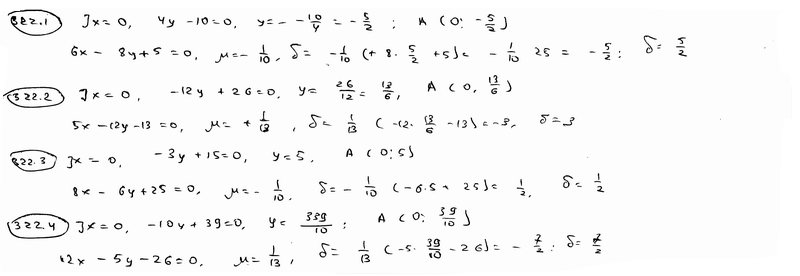 322.1 ]x=0, 4y-10=0, y=--10/4=-5/2; A(0:-5/2)
6x-8y+5=0, μ=-1/10, δ=-1/10(+8·5/2+5)=-1/10 25=-5/2; δ=5/2
322.2 ]x=0, -12y+26=0, y=26/12=13/6, A(0,13/6)
5x-12y-13=0, μ=+1/13, δ=1/13(-12·13/6-13)=-3, δ=3
322.3 ]x=0, -3y+15=0, y=5, A(0:5)
8x-6y+25=0, μ=-1/10, δ=-1/10(-6·5+25)=1/2, δ=1/2
322.4 ]x=0, -10y+39=0, y=339/10; A(0:39/10)
12x-5y-26=0, μ=1/13, δ=1/13(-5·39/10-26)=-7/2; δ=7/2